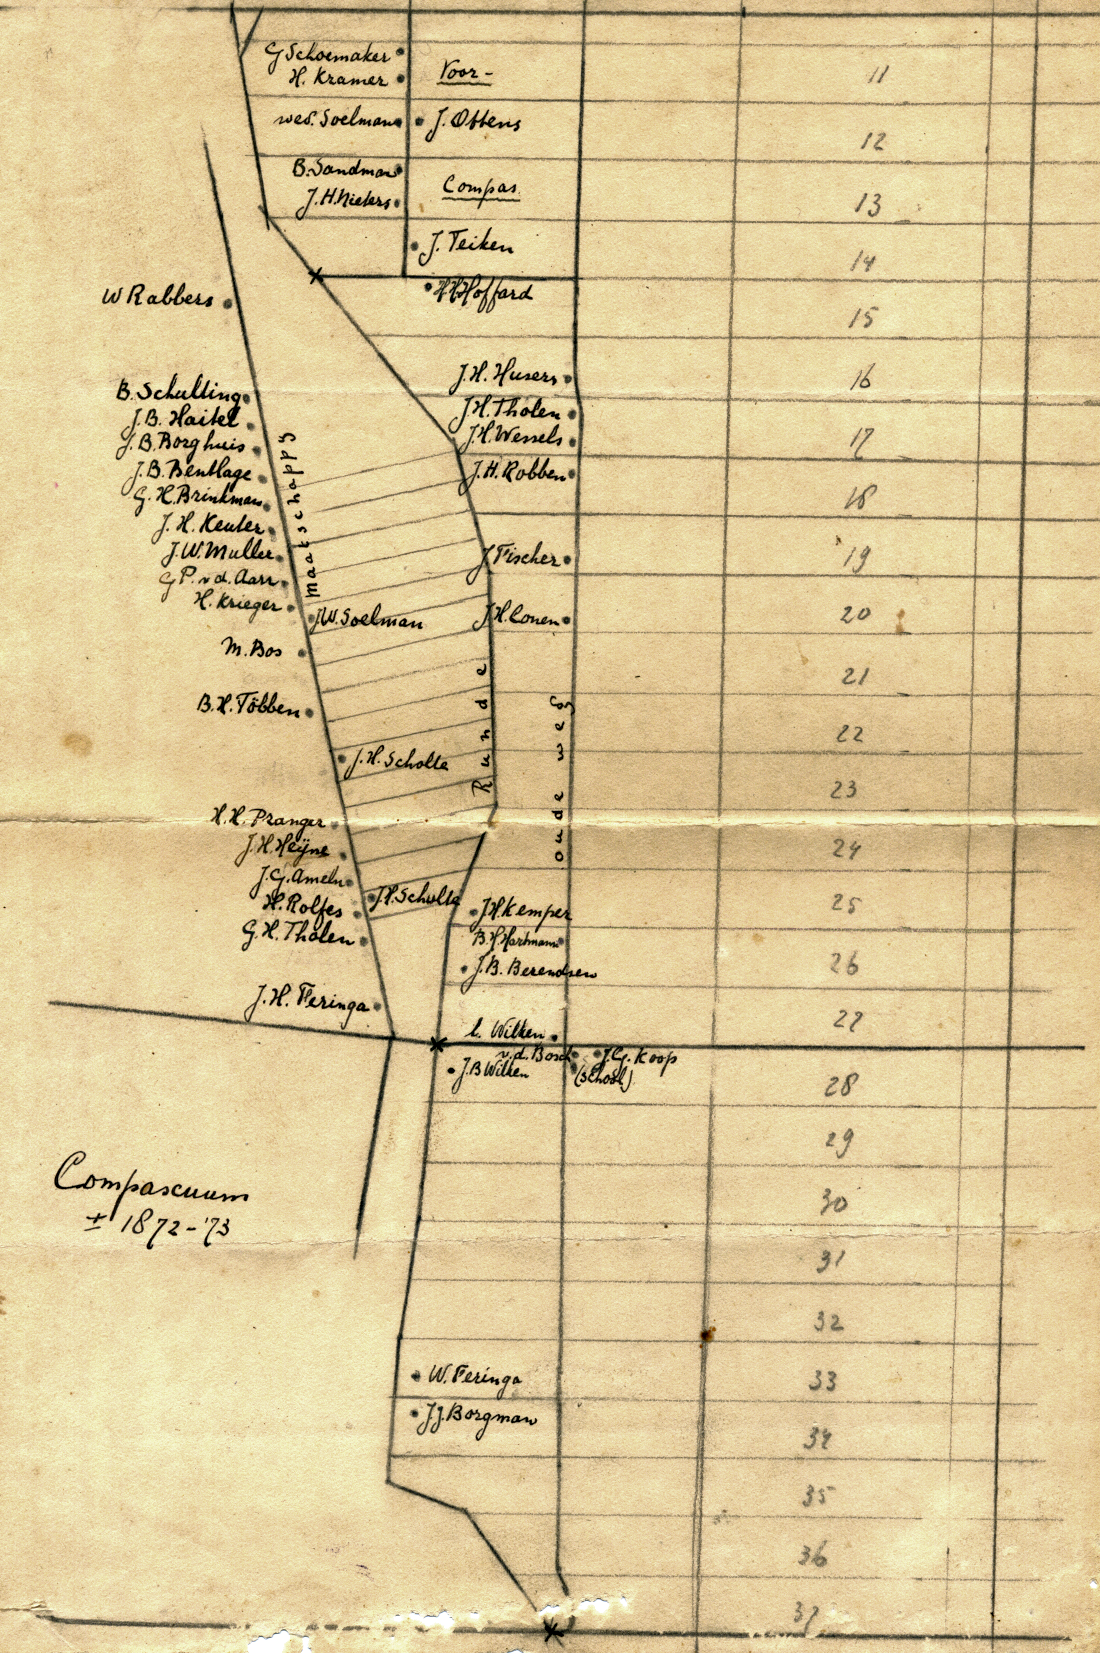 G Schoemaker
H. Kramer
Voor-
11
wed. Soelman
J. Ottens
12
B. Sandman
J.H. Nieters
Compas.
13
J. Teiken
14
W Rabbers
H H Hoffard
15
J. H. Husers
16
B. Schulting
J.H. Tholen
J.B. Haitel
J.H. Wessels
17
J.B. Borghuis
J.B. Bentlage
J.H. Robben
G. H. Brinkman
18
maatschappy
J. H. Keuter
J.W. Muller
J Fischer
19
G P. v.d. Aarr
H. Krieger
J W. Soelman
J H. Conen
20
M. Bos
21
B. H. Többen
Runde
oude weg
22
J. H. Scholte
23
H. H. Pranger
J. H. Heijne
24
J. G. Ameln
H. Rolfes
J H. Scholte
J H Kemper
25
G. H. Tholen
B. H Hartmann
J. B. Berendsen
26
J. H. Feringa
l. Wilken
27
v.d. Bosch
J. G. Koop
J. B Wilken
(school)
28
29
Compascuum
± 1872-'73
30
31
32
W. Feringa
33
J J. Borgman
34
35
36
37